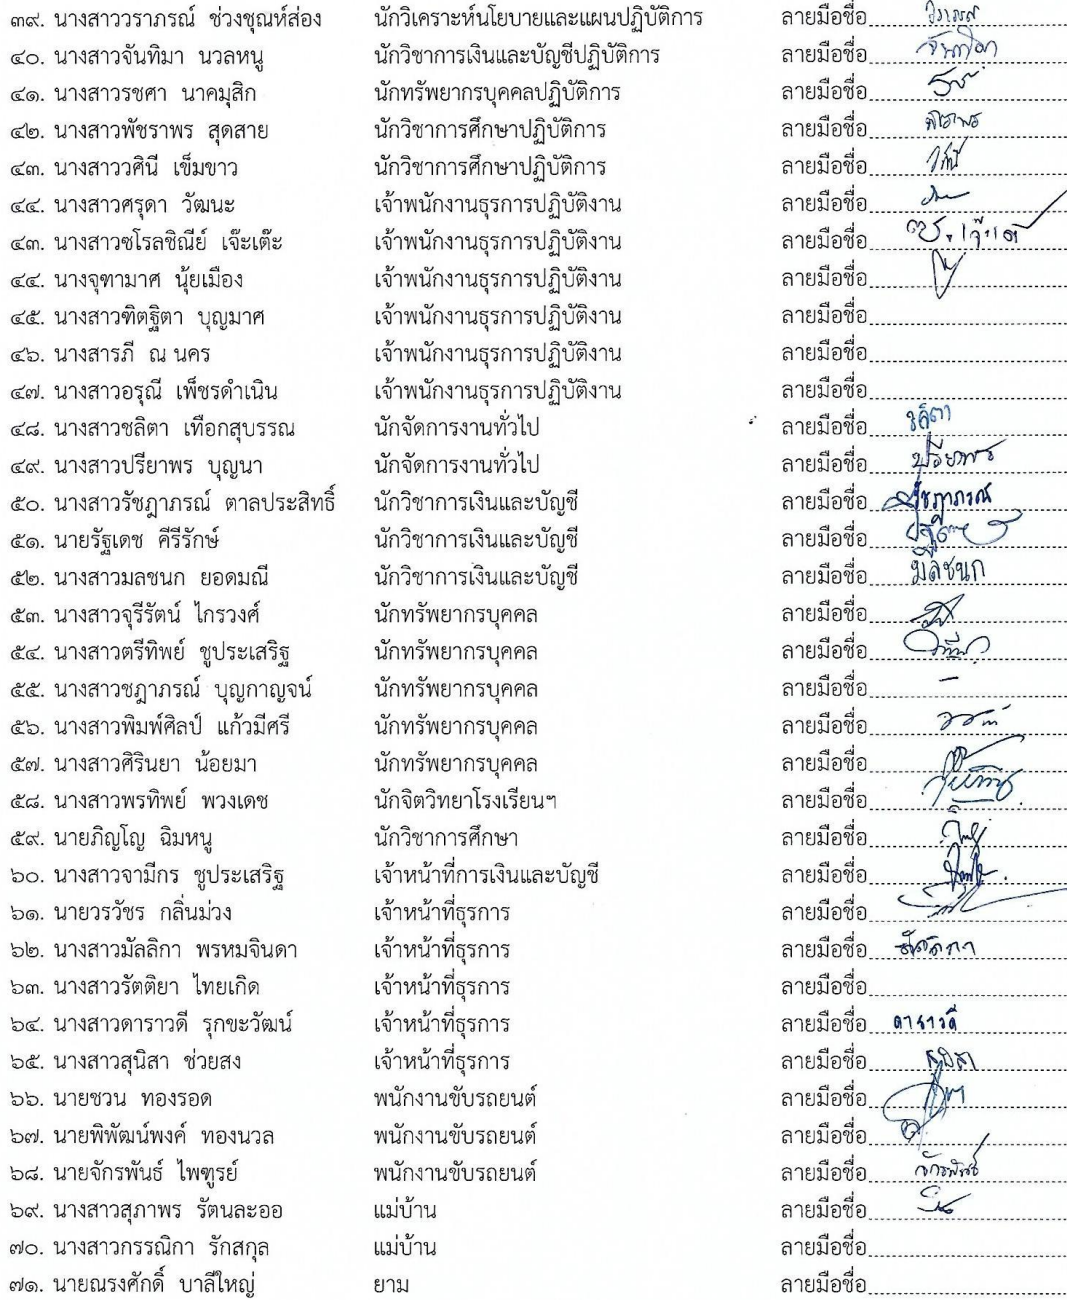 ๓๙. นางสาววราภรณ์ ช่วงชุณห์ส่อง นักวิเคราะห์นโยบายและแผนปฏิบัติการ ลายมือชื่อ วราภรณ์
๔๐. นางสาวจันทิมา นวลหนู นักวิชาการเงินและบัญชีปฏิบัติการ ลายมือชื่อ จันทิมา
๔๑. นางสาวรชศา นาคมุสิก นักทรัพยากรบุคคลปฏิบัติการ ลายมือชื่อ
๔๒. นางสาวพัชราพร สุดสาย นักวิชาการศึกษาปฏิบัติการ ลายมือชื่อ พัชราพร
๔๓. นางสาววศินี เข็มขาว นักวิชาการศึกษาปฏิบัติการ ลายมือชื่อ
๔๔. นางสาวศรุดา วัฒนะ เจ้าพนักงานธุรการปฏิบัติงาน ลายมือชื่อ
๔๓. นางสาวซโรลชิณีย์ เจ๊ะเต๊ะ เจ้าพนักงานธุรการปฏิบัติงาน ลายมือชื่อ
๔๔. นางจุฑามาศ นุ้ยเมือง เจ้าพนักงานธุรการปฏิบัติงาน ลายมือชื่อ
๔๕. นางสาวฑิตฐิตา บุญมาศ เจ้าพนักงานธุรการปฏิบัติงาน ลายมือชื่อ
๔๖. นางสารภี ณ นคร เจ้าพนักงานธุรการปฏิบัติงาน ลายมือชื่อ
๔๗. นางสาวอรุณี เพ็ชรดำเนิน เจ้าพนักงานธุรการปฏิบัติงาน ลายมือชื่อ
๔๘. นางสาวชลิตา เทือกสุบรรณ นักจัดการงานทั่วไป ลายมือชื่อ ชลิตา
๔๙. นางสาวปรียาพร บุญนา นักจัดการงานทั่วไป ลายมือชื่อ ปรียาพร
๕๐. นางสาวรัชฎาภรณ์ ตาลประสิทธิ์ นักวิชาการเงินและบัญชี ลายมือชื่อ รัชฎาภรณ์
๕๑. นายรัฐเดช คีรีรักษ์ นักวิชาการเงินและบัญชี ลายมือชื่อ
๕๒. นางสาวมลชนก ยอดมณี นักวิชาการเงินและบัญชี ลายมือชื่อ มลชนก
๕๓. นางสาวจุรีรัตน์ ไกรวงศ์ นักทรัพยากรบุคคล ลายมือชื่อ
๕๔. นางสาวตรีทิพย์ ชูประเสริฐ นักทรัพยากรบุคคล ลายมือชื่อ
๕๕. นางสาวชฎาภรณ์ บุญกาญจน์ นักทรัพยากรบุคคล ลายมือชื่อ -
๕๖. นางสาวพิมพ์ศิลป์ แก้วมีศรี นักทรัพยากรบุคคล ลายมือชื่อ
๕๗. นางสาวศิรินยา น้อยมา นักทรัพยากรบุคคล ลายมือชื่อ
๕๘. นางสาวพรทิพย์ พวงเดช นักจิตวิทยาโรงเรียนฯ ลายมือชื่อ
๕๙. นายภิญโญ ฉิมหนู นักวิชาการศึกษา ลายมือชื่อ
๖๐. นางสาวจามีกร ชูประเสริฐ เจ้าหน้าที่การเงินและบัญชี ลายมือชื่อ
๖๑. นายวรวัชร กลิ่นม่วง เจ้าหน้าที่ธุรการ ลายมือชื่อ
๖๒. นางสาวมัลลิกา พรหมจินดา เจ้าหน้าที่ธุรการ ลายมือชื่อ มัลลิกา
๖๓. นางสาวรัตติยา ไทยเกิด เจ้าหน้าที่ธุรการ ลายมือชื่อ
๖๔. นางสาวดาราวดี รุกขะวัฒน์ เจ้าหน้าที่ธุรการ ลายมือชื่อ ดาราวดี
๖๕. นางสาวสุนิสา ช่วยสง เจ้าหน้าที่ธุรการ ลายมือชื่อ สุนิสา
๖๖. นายชวน ทองรอด พนักงานขับรถยนต์ ลายมือชื่อ
๖๗. นายพิพัฒน์พงค์ ทองนวล พนักงานขับรถยนต์ ลายมือชื่อ
๖๘. นายจักรพันธ์ ไพฑูรย์ พนักงานขับรถยนต์ ลายมือชื่อ จักรพันธ์
๖๙. นางสาวสุภาพร รัตนละออ แม่บ้าน ลายมือชื่อ
๗๐. นางสาวกรรณิกา รักสกุล แม่บ้าน ลายมือชื่อ
๗๑. นายณรงศักดิ์ บาลีใหญ่ ยาม ลายมือชื่อ